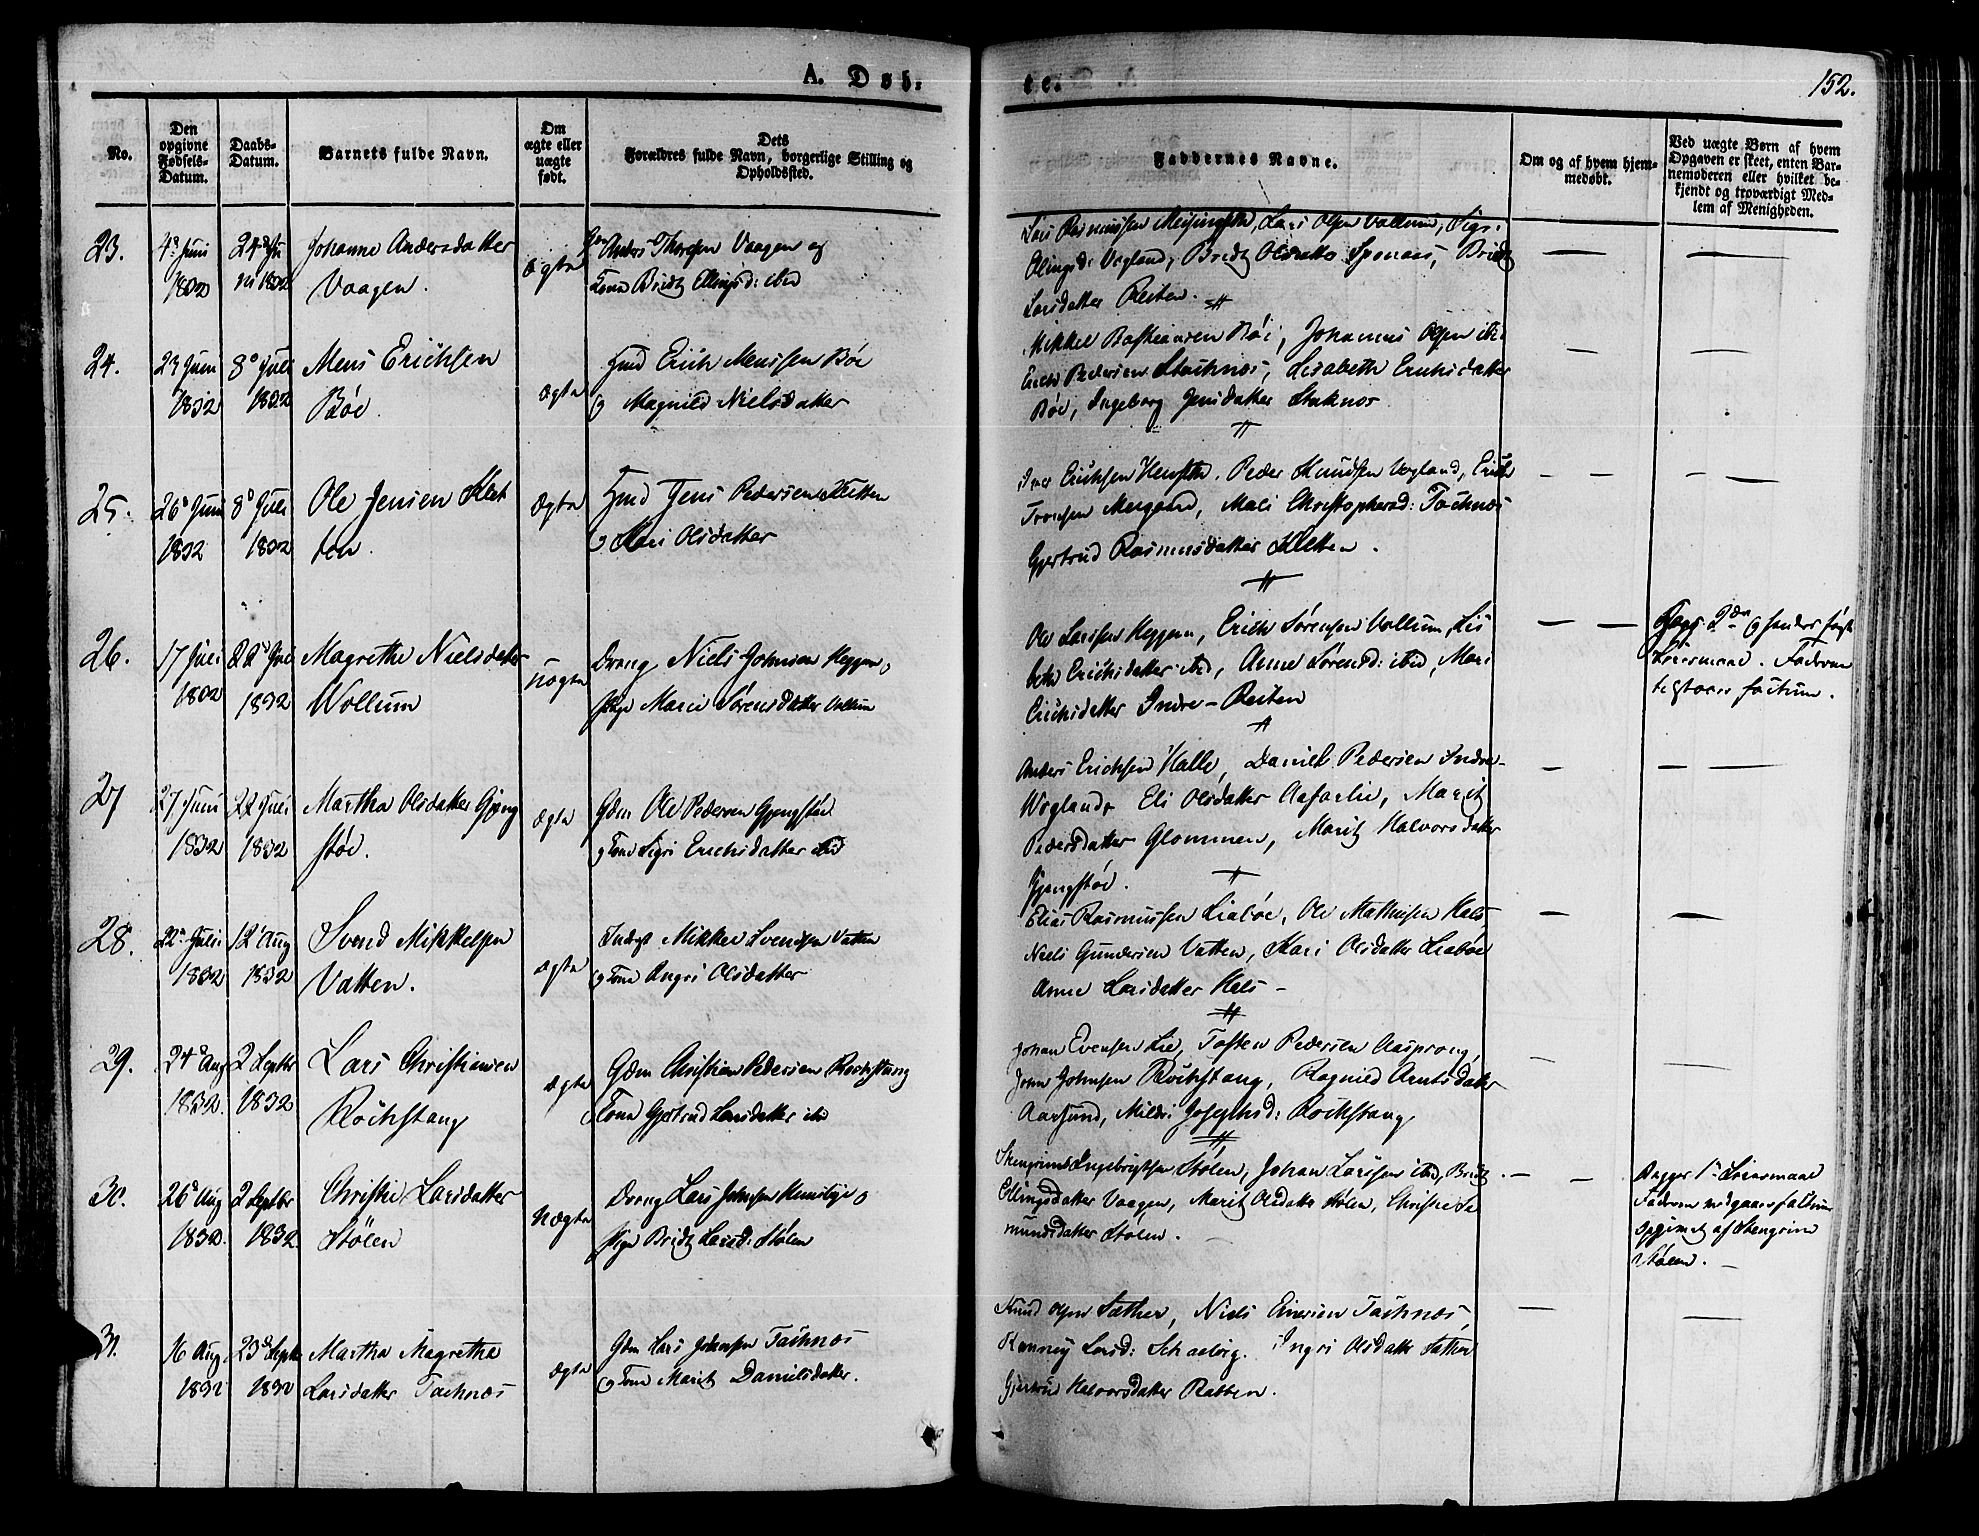 A. Døb-
te.
152.
No.
Den opgivne Fødsels-Datum.
Daabs-Datum.
Barnets fulde Navn.
Om ægte eller uægte født.
Dets Forældres fulde Navn, borgerlige Stilling og Opholdssted.
Faddernes Navne.
Om og af hvem hjem-medøbt.
Ved uægte Børn af hvem Opgaven er skeet, enten Bar-nemoderen eller hvilket be-kjendt og troværdigt Med-lem af Menigheden.
23.
4de Juni
1832
24de Ju
ni 1832
Johanne Andersdatter
Vaagen.
Ægte
Anders Thorsen Vaagen og
Kone Bridt Ellingsd: ibid
Lars Rasmussen Meisingseth, Lars Olsen Vollum, Sigr.
Ellingsd: Vogland, Bridt Olsdatter Sponaas, Bridt
Larsdatter Reiten.
24.
23 Juni
1832
8de Juli
1832
Mens Erichsen
Bøe.
Ægte
Hmd Erich Menssen Bøe
og Magnild Nielsdatter
Mikkel Bastiansen Bøe, Johannes Olsen ibi.
Erich Pedersen Staknes, Lisabeth Erichsdatter
Bøe, Ingeborg Jensdatter Staknes
25.
26de Juni
1832
8de Juli
1832
Ole Jensen Klet
ten.
Ægte
Hmd Jens Pedersen Kletten
og Mari Olsdatter
Iver Erichsen Henseth, Peder Knudsen Vogland, Erich
Tronsen Meegaard, Mali Christophersd: Tachnæs
Gjertrud Rasmusdatter Kletten.
26.
17 Juli
1832
22de Juli
1832
Magrethe Nielsdatter
Wollum
Uægte
Dreng Niels Johnsen Heggem,
Pige Marie Sørensdatter Vollum
Ole Larssen Heggem, Erich Sørensen Vollum, Lis
beth Erichsdatter ibid, Anne Sørensd: ibid, Mari
Erichsdatter Indre-Reiten
2den og hendes første
Leiermaal. Faderen
tilstaaer factum.
27
27 Juni
1832
22 Juli
1832
Martha Olsdatter Gjeng
støe.
Ægte
Gdm Ole Pedersen Gjengstøe
og Kone Sigri Erichsdatter ibid
Anders Erichsen Halle, Daniel Pedersen Indre-
Wogland, Eli Olsdatter Aasarlie, Marit
Pedersdatter Glommen, Marit Halvorsdatter
Gjengstøe.
28.
22de Juli
1832
12 Aug
1832
Svend Mikkelsen
Vatten.
Ægte
Indrgt Mikkel Svendsen Vatten
og Kone Angri Olsdatter
Elias Rasmussen Liabøe, Ole Mathisen Hals
Niels Gundersen Vatten, Kari Olsdatter Liabøe
Anne Larsdatter Hals -
29.
24de Aug
1832.
2 Septbr
1832
Lars Christiansen
Rochstang
Ægte
Gdm Christian Pedersen Rochstang
Kone Gjertrud Larsdatter ibi
Johan Evensen Lie, Tosten Pedersen Aasprong,
John Johnsen Rochstang, Ragnild Arntsdatter
Aarsund, Mildri Josephsd: Rochstang
30.
26de Aug
1832.
2 Septbr
1832.
Christie Larsdatter
Stølen
Uægte
Dreng Lars Johnsen
Pige Bridt Larsd: Stølen
Stengrim Ingebrigtsen Stølen, Johan Larssen ibid, Bridt
Ellingsdatter Vaagen, Marit Olsdatter Stølen, Christie Sæ
mundsdatter Stølen.
Begges 1te Leiermaal
Faderen vedgaaer factum
opgivet af Stengrim
Stølen.
31.
16 Aug
1832
23de Septb
1832
Martha Magretha
Larsdatter Tachnæs
Ægte
Gdm Lars Johnsen Tachnæs
og Kone Marit Danielsdatter.
Knud Olsen Sæther, Niels Einersen Tachnæs,
Ranney Larsd: Schaalvig. Ingri Olsdatter Sætter
Gjertrud Halvorsdatter Rabben.